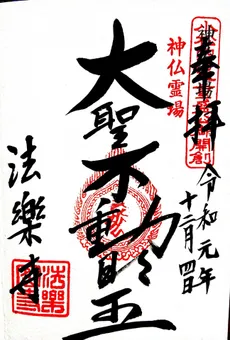 奉拝
令和元年
十二月四日
神仏霊場
大聖不動明王
法樂寺
法樂寺